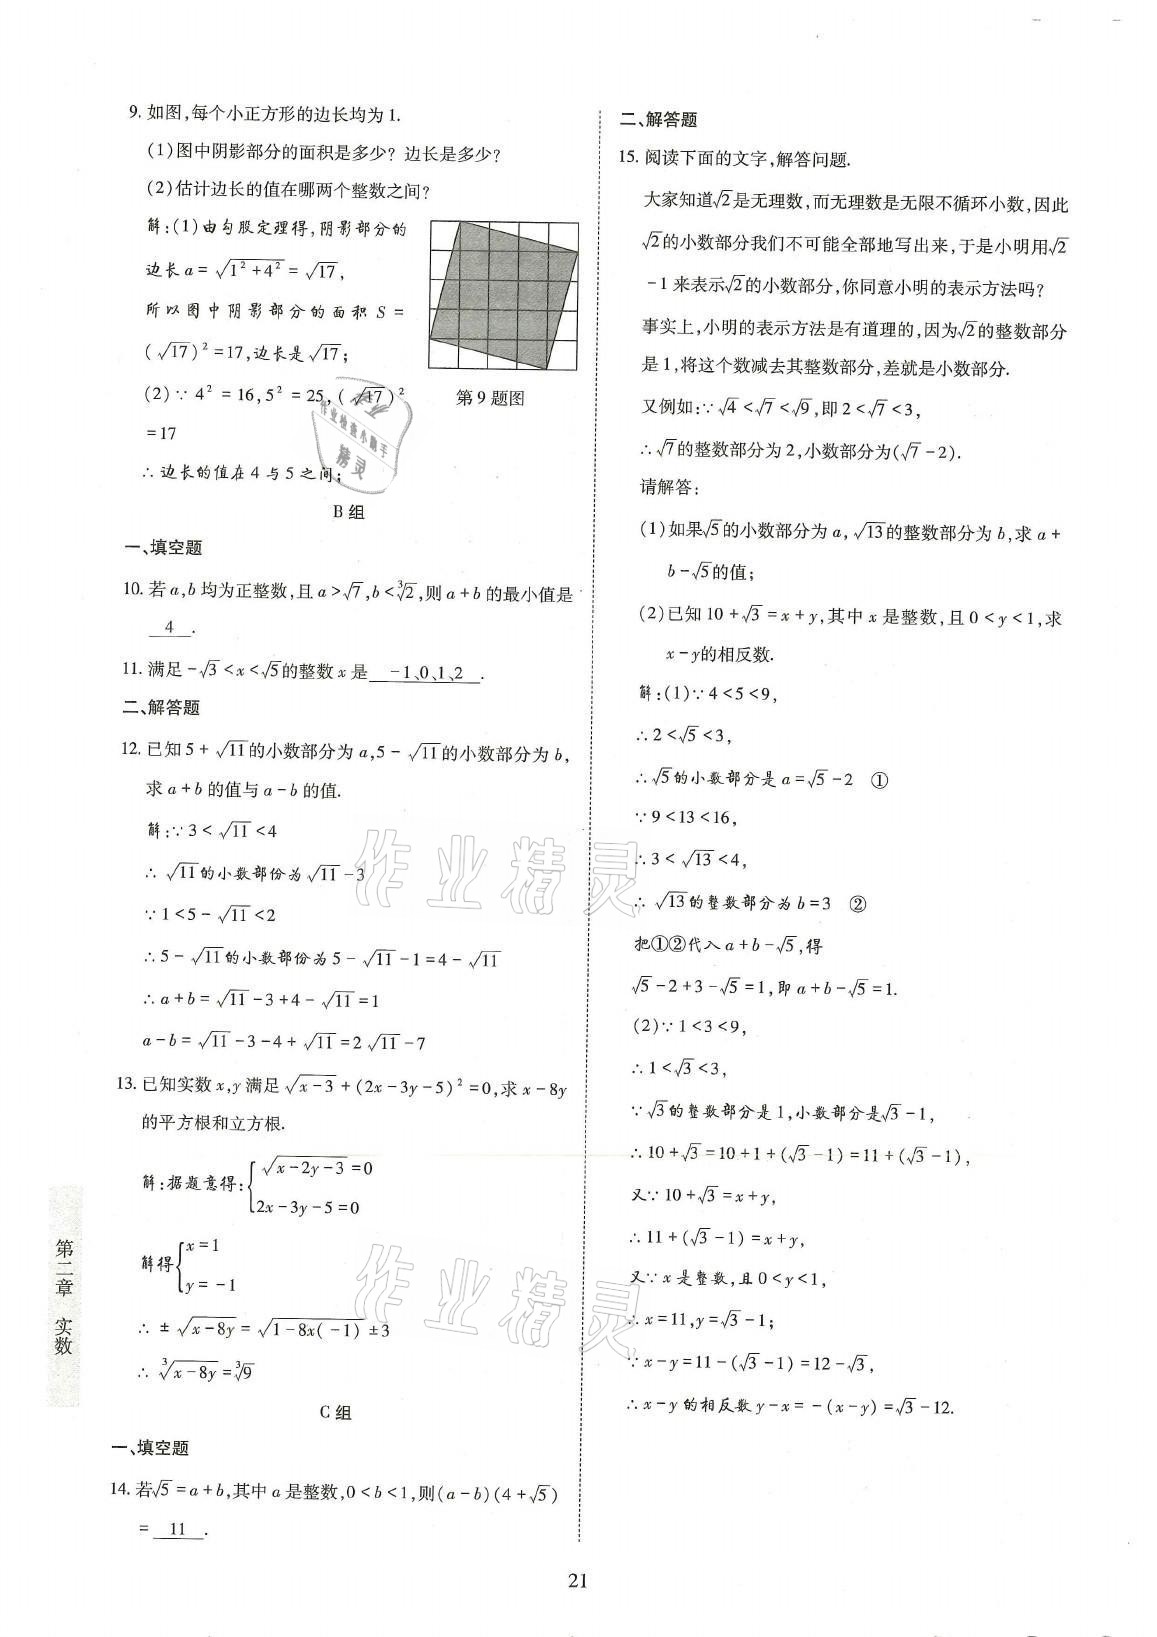 9. 如图,每个小正方形的边长均为 1.
(1)图中阴影部分的面积是多少? 边长是多少?
(2)估计边长的值在哪两个整数之间?
解:(1)由勾股定理得,阴影部分的
边长 a = √(1²+4²) = √17,
所以图中阴影部分的面积 S =
(√17)² = 17,边长是√17;
(2)∵ 4² = 16, 5² = 25, (√17)²
= 17
∴ 边长的值在 4 与 5 之间;
第 9 题图
B 组
一、填空题
10. 若 a,b 均为正整数,且 a > √7, b < ∛2,则 a + b 的最小值是
4 .
11. 满足 -√3 < x < √5的整数 x 是 -1、0、1、2 .
二、解答题
12. 已知 5 + √11的小数部分为 a, 5 - √11的小数部分为 b,
求 a + b 的值与 a - b 的值.
解:∵ 3 < √11 < 4
∴ √11的小数部份为 √11 - 3
∵ 1 < 5 - √11 < 2
∴ 5 - √11的小数部份为 5 - √11 - 1 = 4 - √11
∴ a + b = √11 - 3 + 4 - √11 = 1
a - b = √11 - 3 - 4 + √11 = 2√11 - 7
13. 已知实数 x,y 满足 √(x-3) + (2x - 3y - 5)² = 0,求 x - 8y
的平方根和立方根.
解:据题意得: { √(x-2y-3) = 0
2x - 3y - 5 = 0
解得 { x = 1
y = -1
∴ ± √(x-8y) = √(1-8x(-1)) ± 3
∴ ∛(x-8y) = ∛9
C 组
一、填空题
14. 若√5 = a + b,其中 a 是整数, 0 < b < 1,则(a - b)(4 + √5)
= 11 .
二、解答题
15. 阅读下面的文字,解答问题.
大家知道√2是无理数,而无理数是无限不循环小数,因此
√2的小数部分我们不可能全部地写出来,于是小明用√2
- 1 来表示√2的小数部分,你同意小明的表示方法吗?
事实上,小明的表示方法是有道理的,因为√2的整数部分
是 1,将这个数减去其整数部分,差就是小数部分.
又例如:∵ √4 < √7 < √9,即 2 < √7 < 3,
∴ √7的整数部分为 2,小数部分为(√7 - 2).
请解答:
(1)如果√5的小数部分为 a, √13的整数部分为 b,求 a +
b - √5的值;
(2)已知 10 + √3 = x + y,其中 x 是整数,且 0 < y < 1,求
x - y的相反数.
解:(1)∵ 4 < 5 < 9,
∴ 2 < √5 < 3,
∴ √5的小数部分是 a = √5 - 2 ①
∵ 9 < 13 < 16,
∴ 3 < √13 < 4,
∴ √13的整数部分为 b = 3 ②
把①②代入 a + b - √5,得
√5 - 2 + 3 - √5 = 1,即 a + b - √5 = 1.
(2)∵ 1 < 3 < 9,
∴ 1 < √3 < 3,
∵ √3的整数部分是 1,小数部分是√3 - 1,
∴ 10 + √3 = 10 + 1 + (√3 - 1) = 11 + (√3 - 1),
又∵ 10 + √3 = x + y,
∴ 11 + (√3 - 1) = x + y,
又∵ x 是整数,且 0 < y < 1,
∴ x = 11, y = √3 - 1;
∵ x - y = 11 - (√3 - 1) = 12 - √3,
∴ x - y 的相反数 y - x = -(x - y) = √3 - 12.
第二章 实数
21
作业检查小助手
精灵
作业精灵
作业精灵